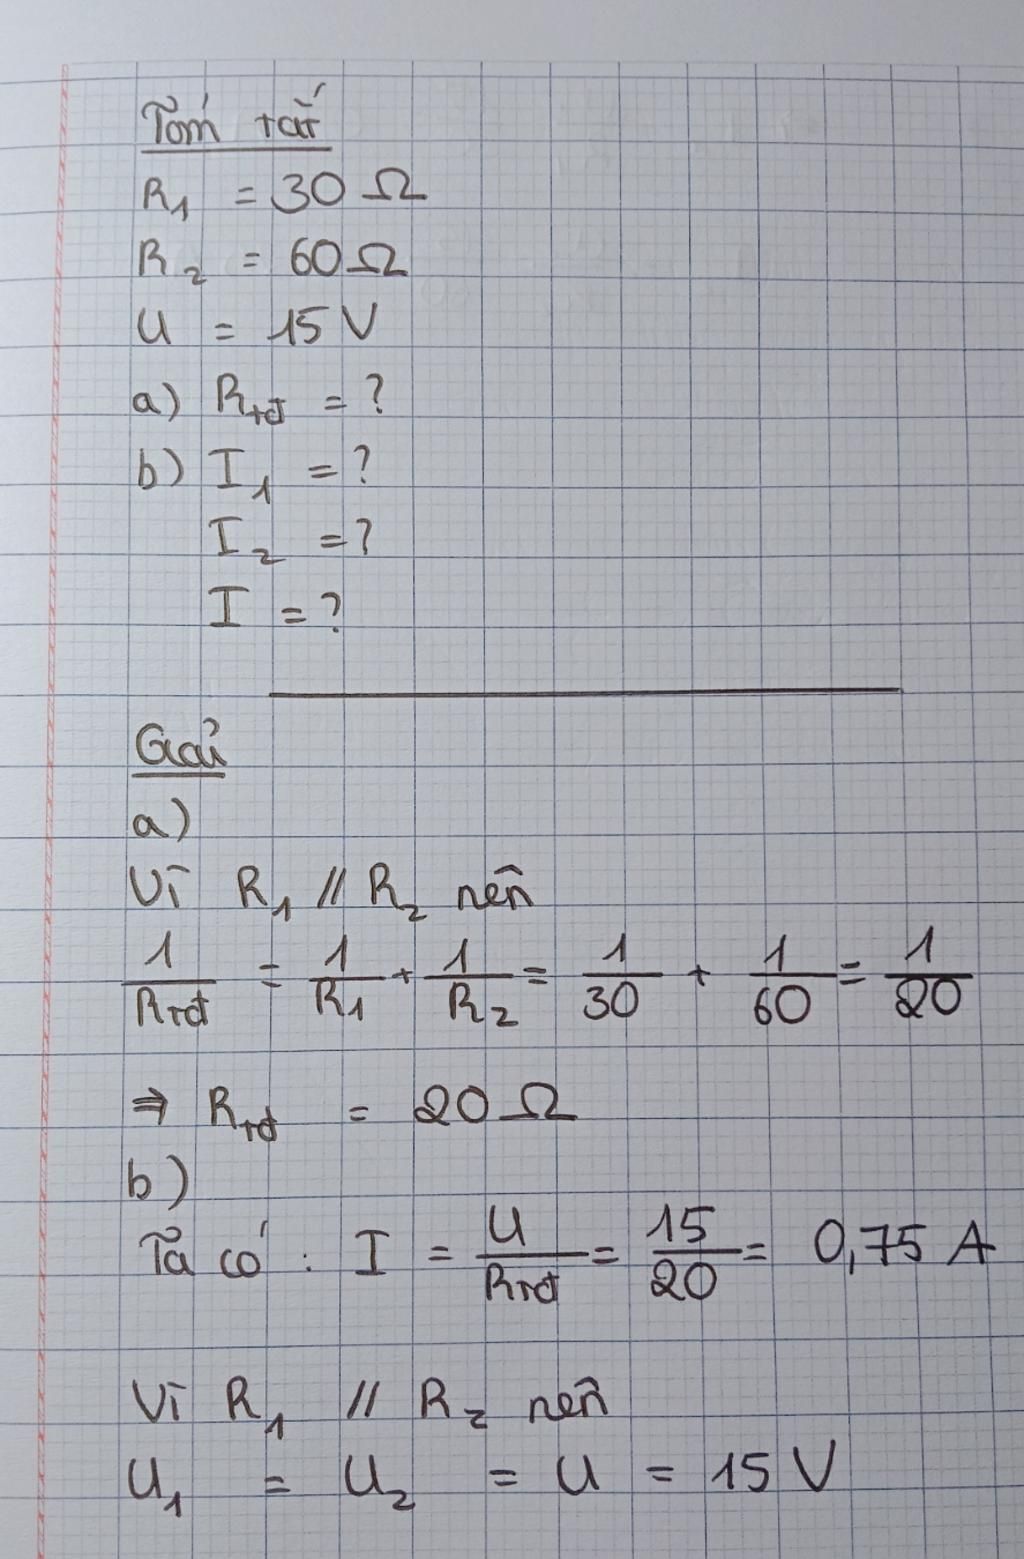 Tóm tắt
R₁ = 30 Ω
R₂ = 60 Ω
U = 15 V
a) Rtđ = ?
b) I₁ = ?
I₂ = ?
I = ?
Giải
a)
Vì R₁ // R₂ nên
1/Rtđ = 1/R₁ + 1/R₂ = 1/30 + 1/60 = 1/20
⇒ Rtđ = 20 Ω
b)
Ta có : I = U/Rtđ = 15/20 = 0,75 A
Vì R₁ // R₂ nên
U₁ = U₂ = U = 15 V